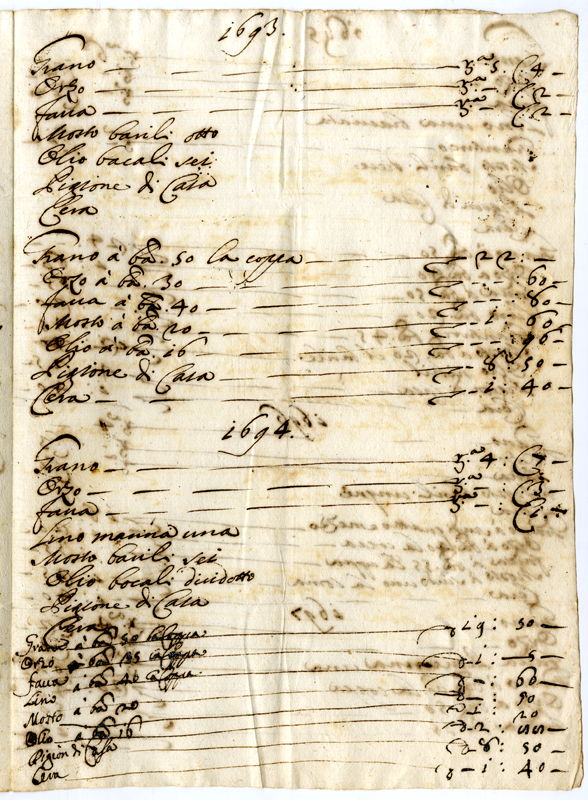 1693.
Grano — — — r.a 5. C 4 —
Orzo — — — r.a — : C 2 —
faua — — — r.a — : C 2 —
Mosto barili otto
Olio bocali sei
Pigione di Casa
Cera
Grano à ba. 50 la coppa — 22 : —
Orzo à ba. 30 — — : 60 —
faua à ba. 40 — — : 80 —
Mosto à ba. 20 — 1 : 60 —
Olio à ba. 16 — — : 96 —
Pigione di Casa — 8 : 50 —
Cera — — 1 : 40 —
1694.
Grano — — — r.a 4 : C
Orzo — — — r.a — : C
faua — — — r.a — : C
Lino manna una
Mosto barili sei
Olio bocali dicidotto
Pigione di Casa
Cera
Grano à ba 50 la coppa — 19 : 50 —
Orzo à ba la coppa — 1 : 5 —
faua à ba 40 la coppa — : 60 —
Lino — : 50
Mosto à ba 20 — 1 : 20
Olio à ba 16 — 2 :
Pigion di Casa — 8 : 50 —
Cera — 1 : 40 —